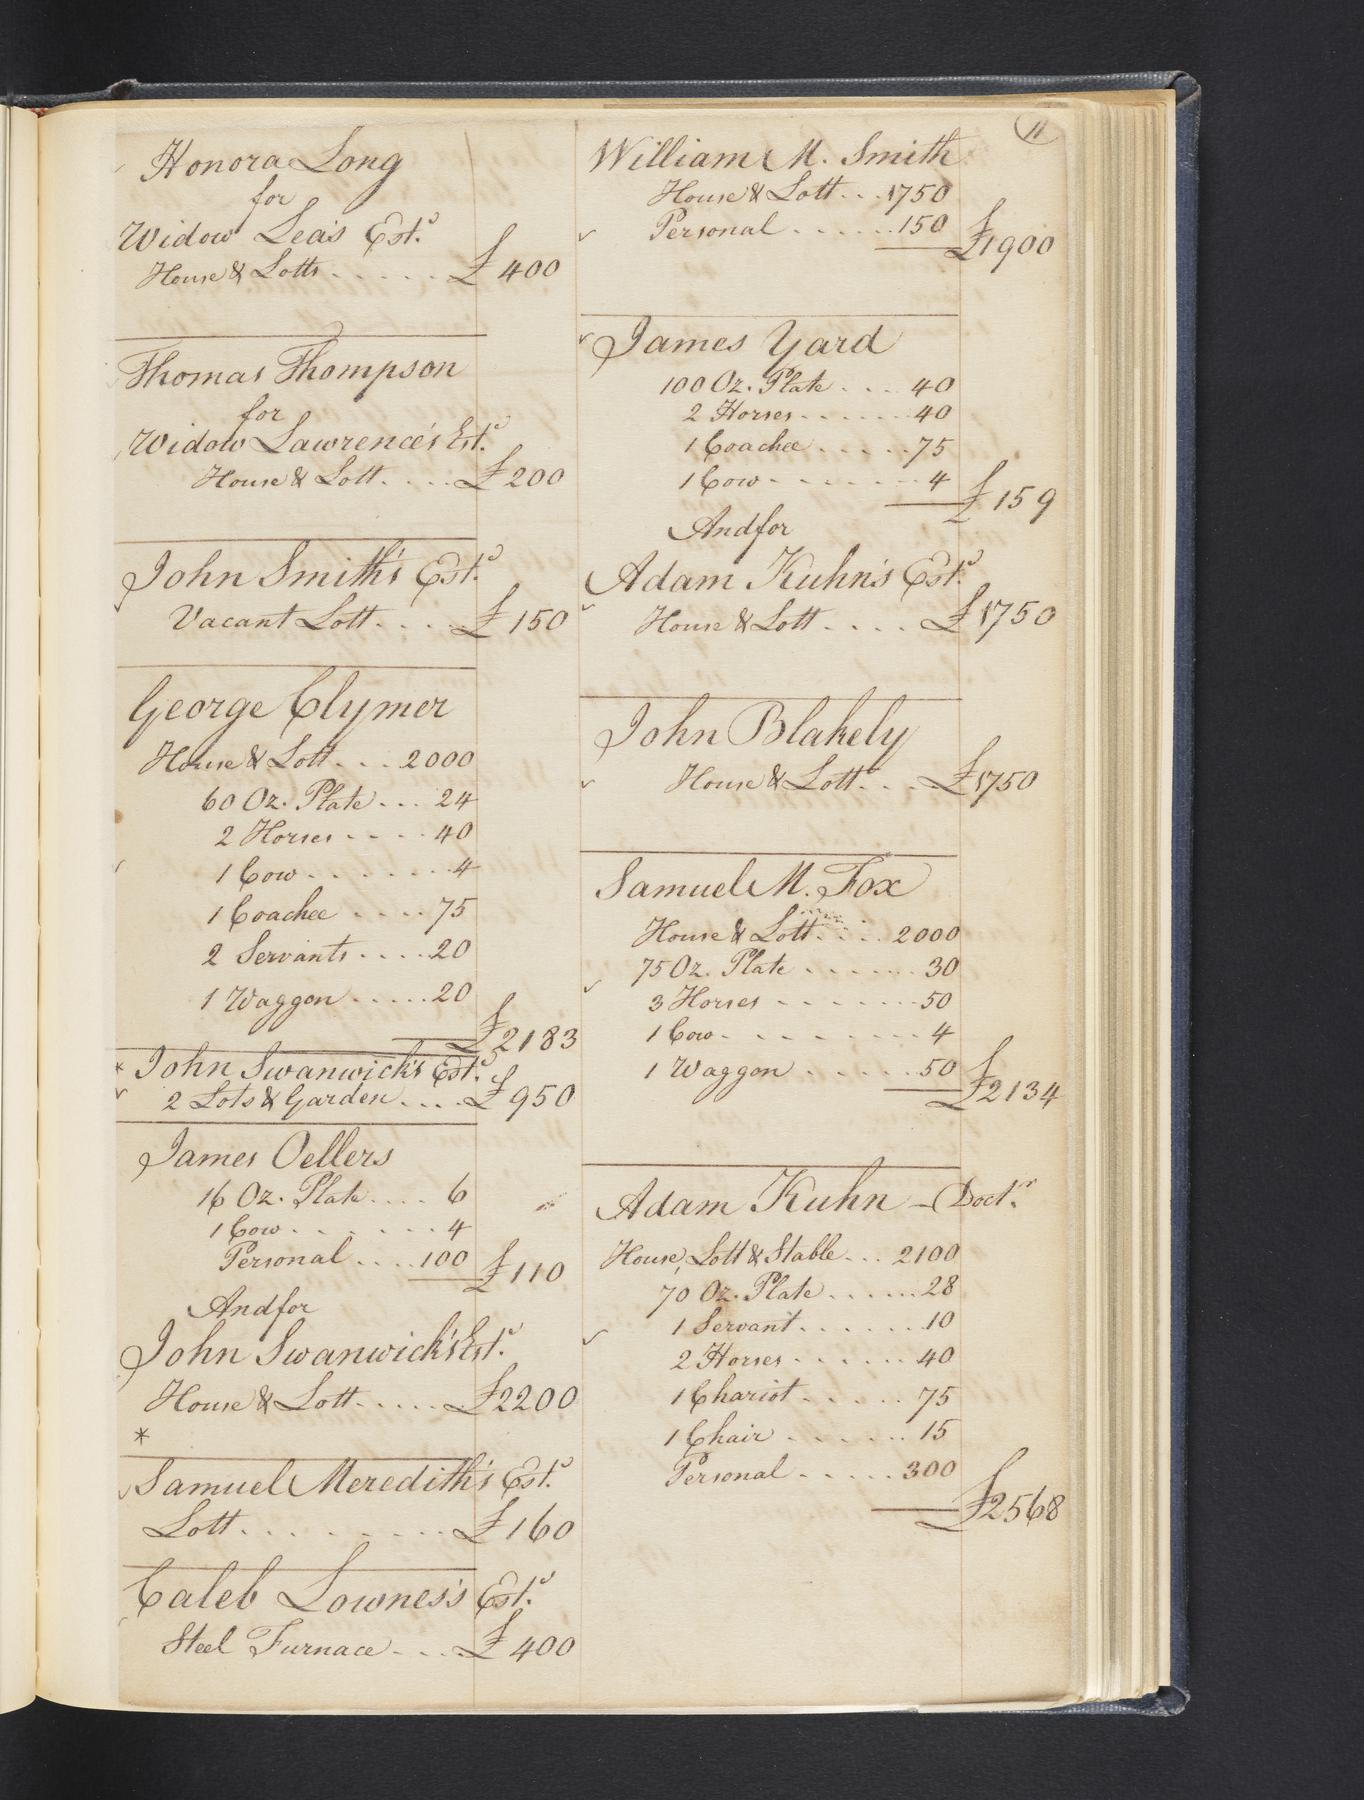 11
Honora Long
for
Widow Lea's Est.e
House & Lotts . . . . . . £400
Thomas Thompson
for
Widow Lawrence's Est.e
House & Lott . . . . £200
John Smith's Est.e
Vacant Lott . . . . £150
George Clymer
House & Lott . . . 2000
60 Oz. Plate . . . 24
2 Horses . . . . 40
1 Cow . . . . . . . 4
1 Coachee . . . . 75
2 Servants . . . . 20
1 Waggon . . . . . 20
£2183
* John Swanwick's Est.e
2 Lots & Garden . . . . £950
James Oellers
16 Oz. Plate . . . . 6
1 Cow . . . . . . . 4
Personal . . . . 100
£110
And for
John Swanwick's Est.e
House & Lott . . . . . £2200
*
Samuel Meredith's Est.e
Lott . . . . . . . . . . £160
Caleb Lownes's Est.e
Steel Furnace . . . . £400
William M. Smith
House & Lott . . . 1750
Personal . . . . . . 150
£1900
James Yard
100 Oz. Plate . . . 40
2 Horses . . . . . . 40
1 Coachee . . . . . 75
1 Cow . . . . . . . . 4
£159
And for
Adam Kuhn's Est.e
House & Lott . . . . £1750
John Blakely
House & Lott . . . £1750
Samuel M. Fox
House & Lott . . . . 2000
75 Oz. Plate . . . . . . 30
3 Horses . . . . . . . . 50
1 Cow . . . . . . . . . 4
1 Waggon . . . . . . 50
£2134
Adam Kuhn – Doct.r
House, Lott & Stable . . . 2100
70 Oz. Plate . . . . . . 28
1 Servant . . . . . . . 10
2 Horses . . . . . . 40
1 Chariot . . . . . 75
1 Chair . . . . . . 15
Personal . . . . . 300
£2568